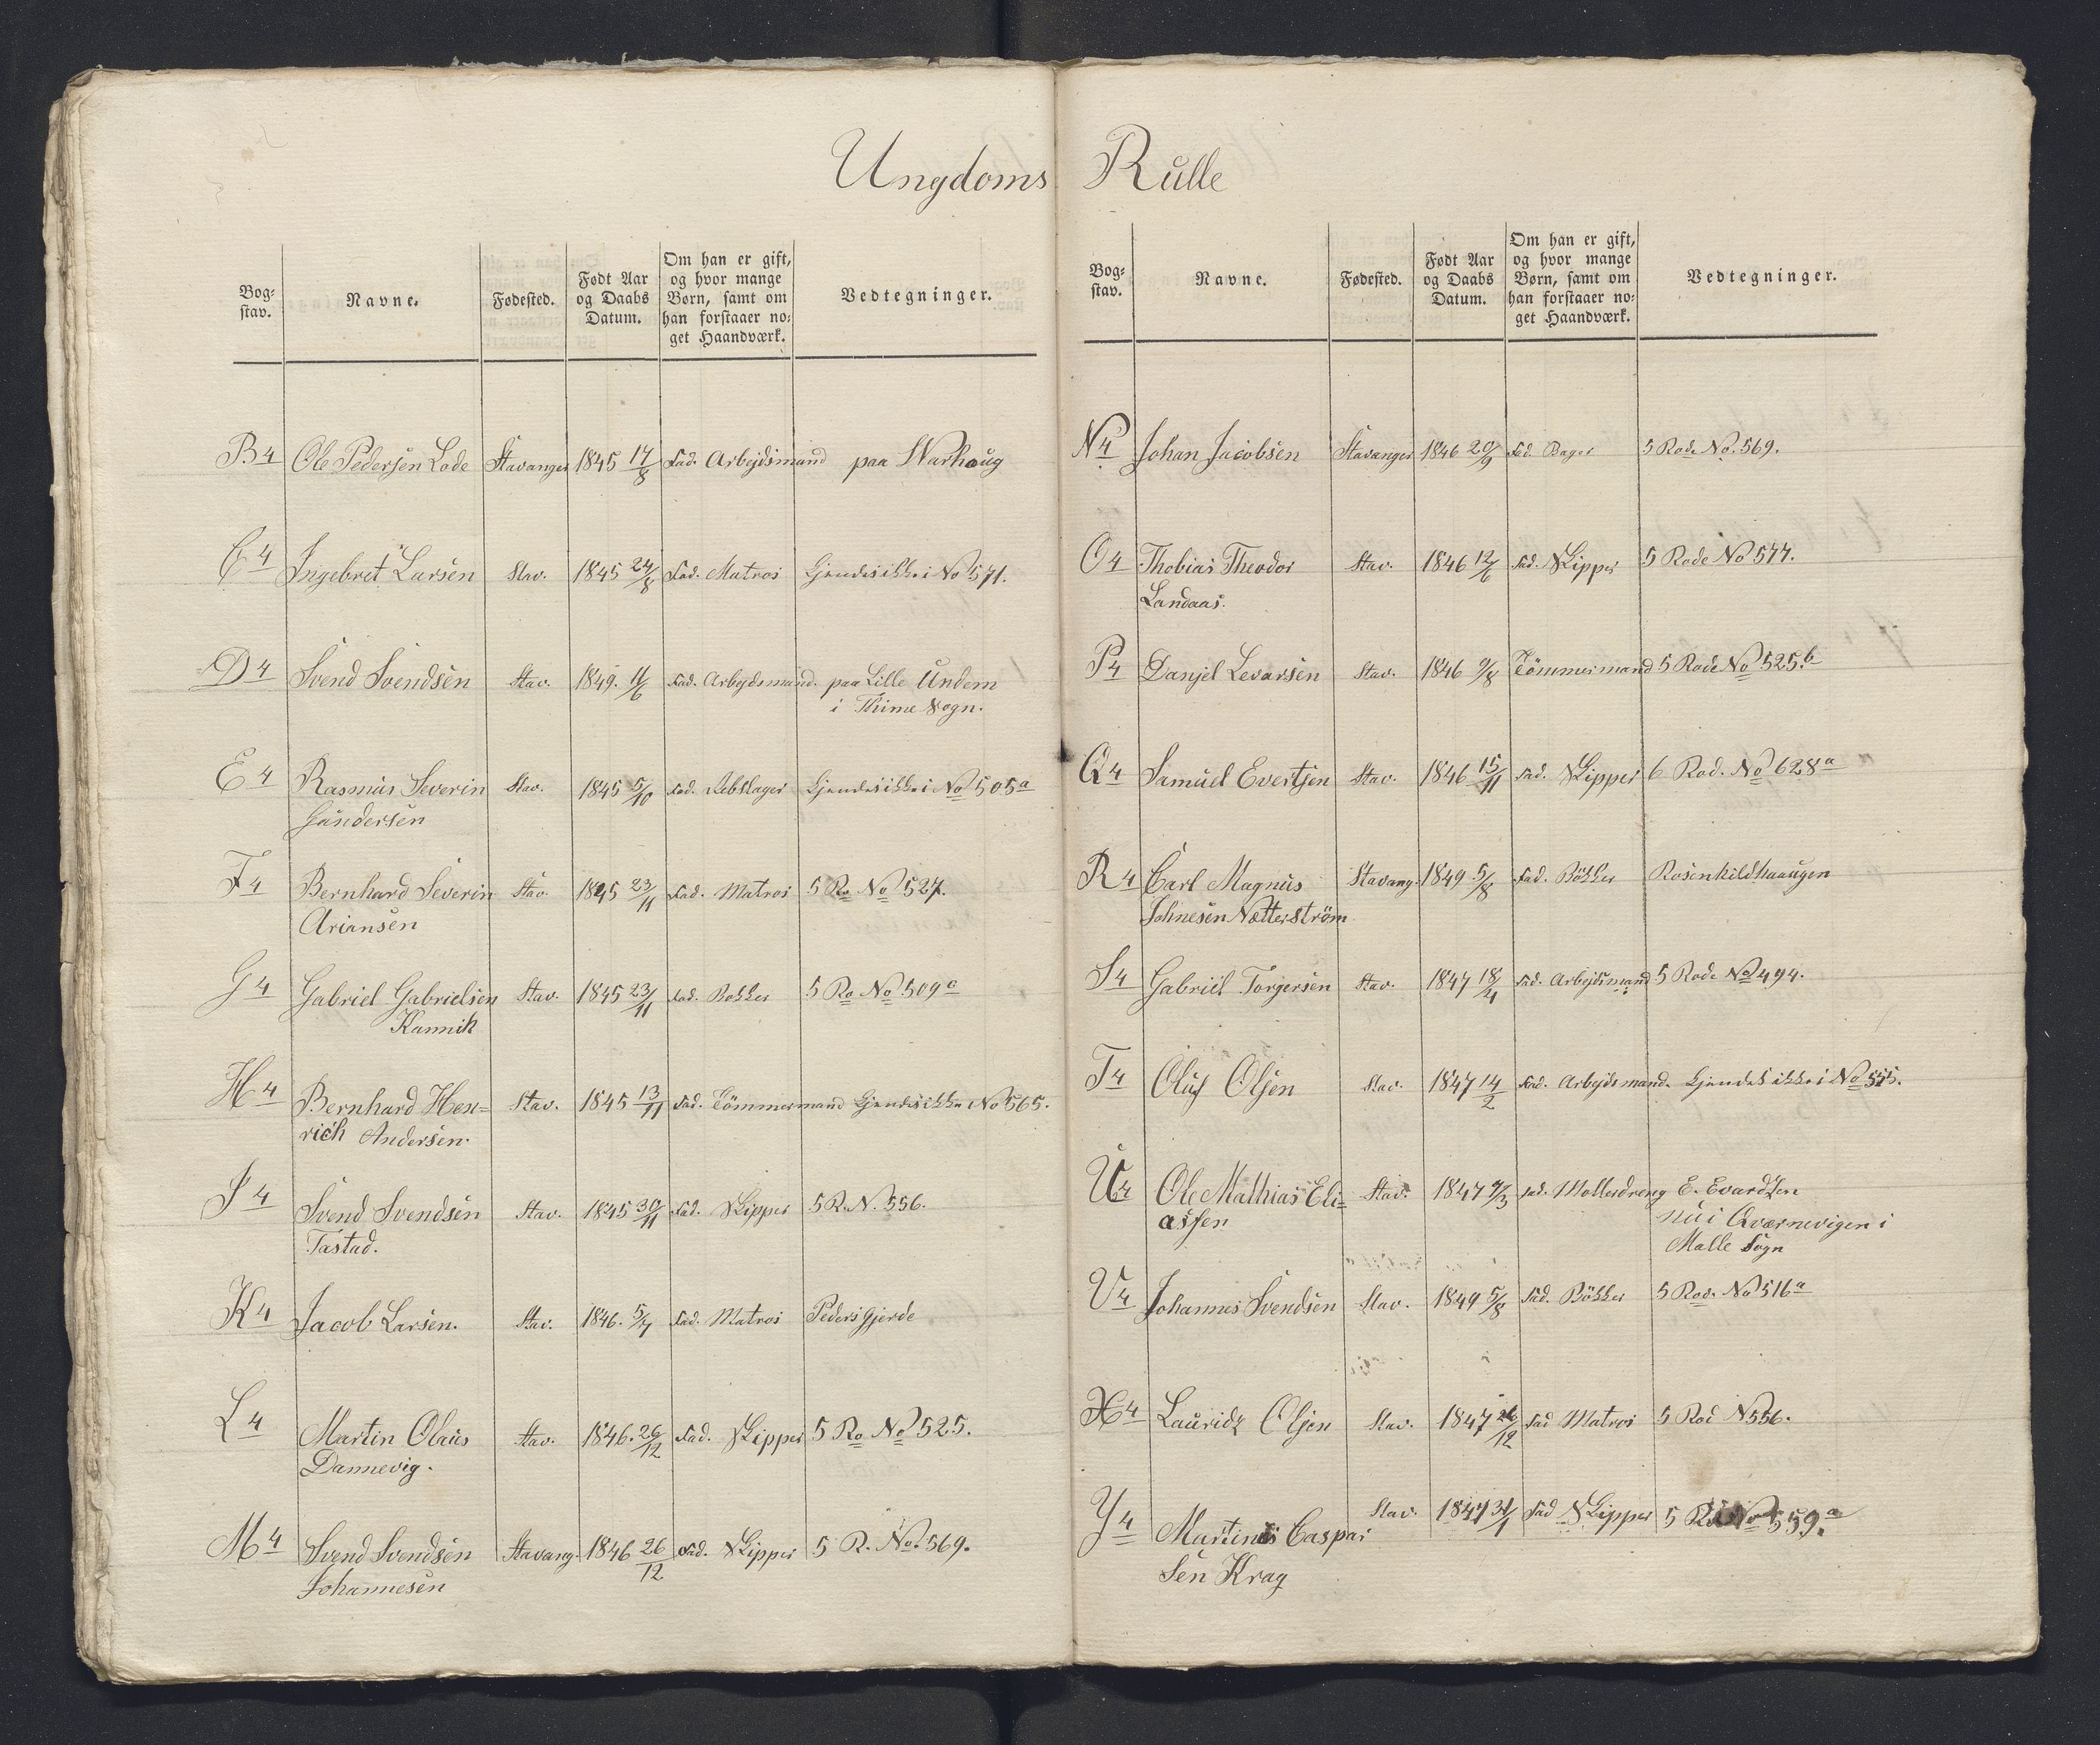 Ungdoms Rulle
Bog-
stav.
Navne.
Fødested.
Født Aar
og Daabs
Datum.
Om han er gift,
og hvor mange
Børn, samt om
han forstaaer no-
get Haandværk.
Vedtegninger.
B4 Ole Pedersen Lode Stavanger 1845 17/8 Fad. Arbejdsmand paa Warhoug
C4 Ingebret Larsen Stav. 1845 24/8 Fad. Matros Gjendes ikke i No 571.
D4 Svend Svendsen Stav. 1849. 11/6 Fad. Arbejdsmand. paa Lille Undem
i Thime Sogn.
E4 Rasmus Severin Stav. 1845 5/10 Fad. Rebslager Gjendes ikke i No 505a
Gundersen
F4 Bernhard Severin Stav. 1845 23/11 Fad. Matros 5 Ro No 527.
Ariansen
G4 Gabriel Gabrielsen Stav. 1845 23/11 Fad. Bøkker 5 Ro No 509a
Kannik
H4 Bernhard Hen= Stav. 1845 13/11 Fad. Tömmermand Gjendes ikke No 565.
rich Andersen.
I4 Svend Svendsen Stav. 1845 30/11 Fad. Skipper 5 R. N. 556.
Tastad.
K4 Jacob Larsen. Stav. 1846. 5/7 Fad. Matros Pedersgjerde
L4 Martin Olaus Stav. 1846. 26/12 Fad. Skipper 5 Ro No 525.
Dannevig.
M4 Svend Svendsen Stavang. 1846 26/12 Fad. Skipper 5 R. No. 569.
Johannesen
Bog-
stav.
Navne.
Fødested.
Født Aar
og Daabs
Datum.
Om han er gift,
og hvor mange
Børn, samt om
han forstaaer no-
get Haandværk.
Vedtegninger.
N4 Johan Jacobsen Stavanger 1846 20/9 Fad. Bager 5 Rode No. 569.
O4 Thobias Theodor Stav. 1846 12/6 Fad. Skipper 5 Rode No 577.
Landaas.
P4 Danjel Levarsen Stav. 1846 9/8 Tömmermand 5 Rode No 525.b
Q4 Samuel Evertsen Stav. 1846 15/11 Fad. Skipper 6 Rod. No 628a
R4 Carl Magnus Stavang. 1849 5/8 Fad. Bökker Rosenkildhaugen
Johnesen Nætterström
S4 Gabriel Torgersen Stav. 1847 18/4 Fad. Arbejdsmand 5 Rode No 494.
T4 Oluf Olsen Stav. 1847 14/2 Fad. Arbejdsmand. Gjendes ikke i No 515.
U4 Ole Mathias Eli= Stav. 1847 9/3 Fad. Mollerdreng E. Evardsen
assen nu i Qværnevigen i
Malle Sogn
V4 Johannes Svendsen Stav. 1849 5/8 Fad. Bökker 5 Rode No 516a
X4 Lauridz Olsen Stav. 1847 26/12 Fad Matros 5 Rod N 556.
Y4 Martinus Caspar Stav. 1847 31/1 Fad Skipper 5 Rod No 559.a
sen Krag